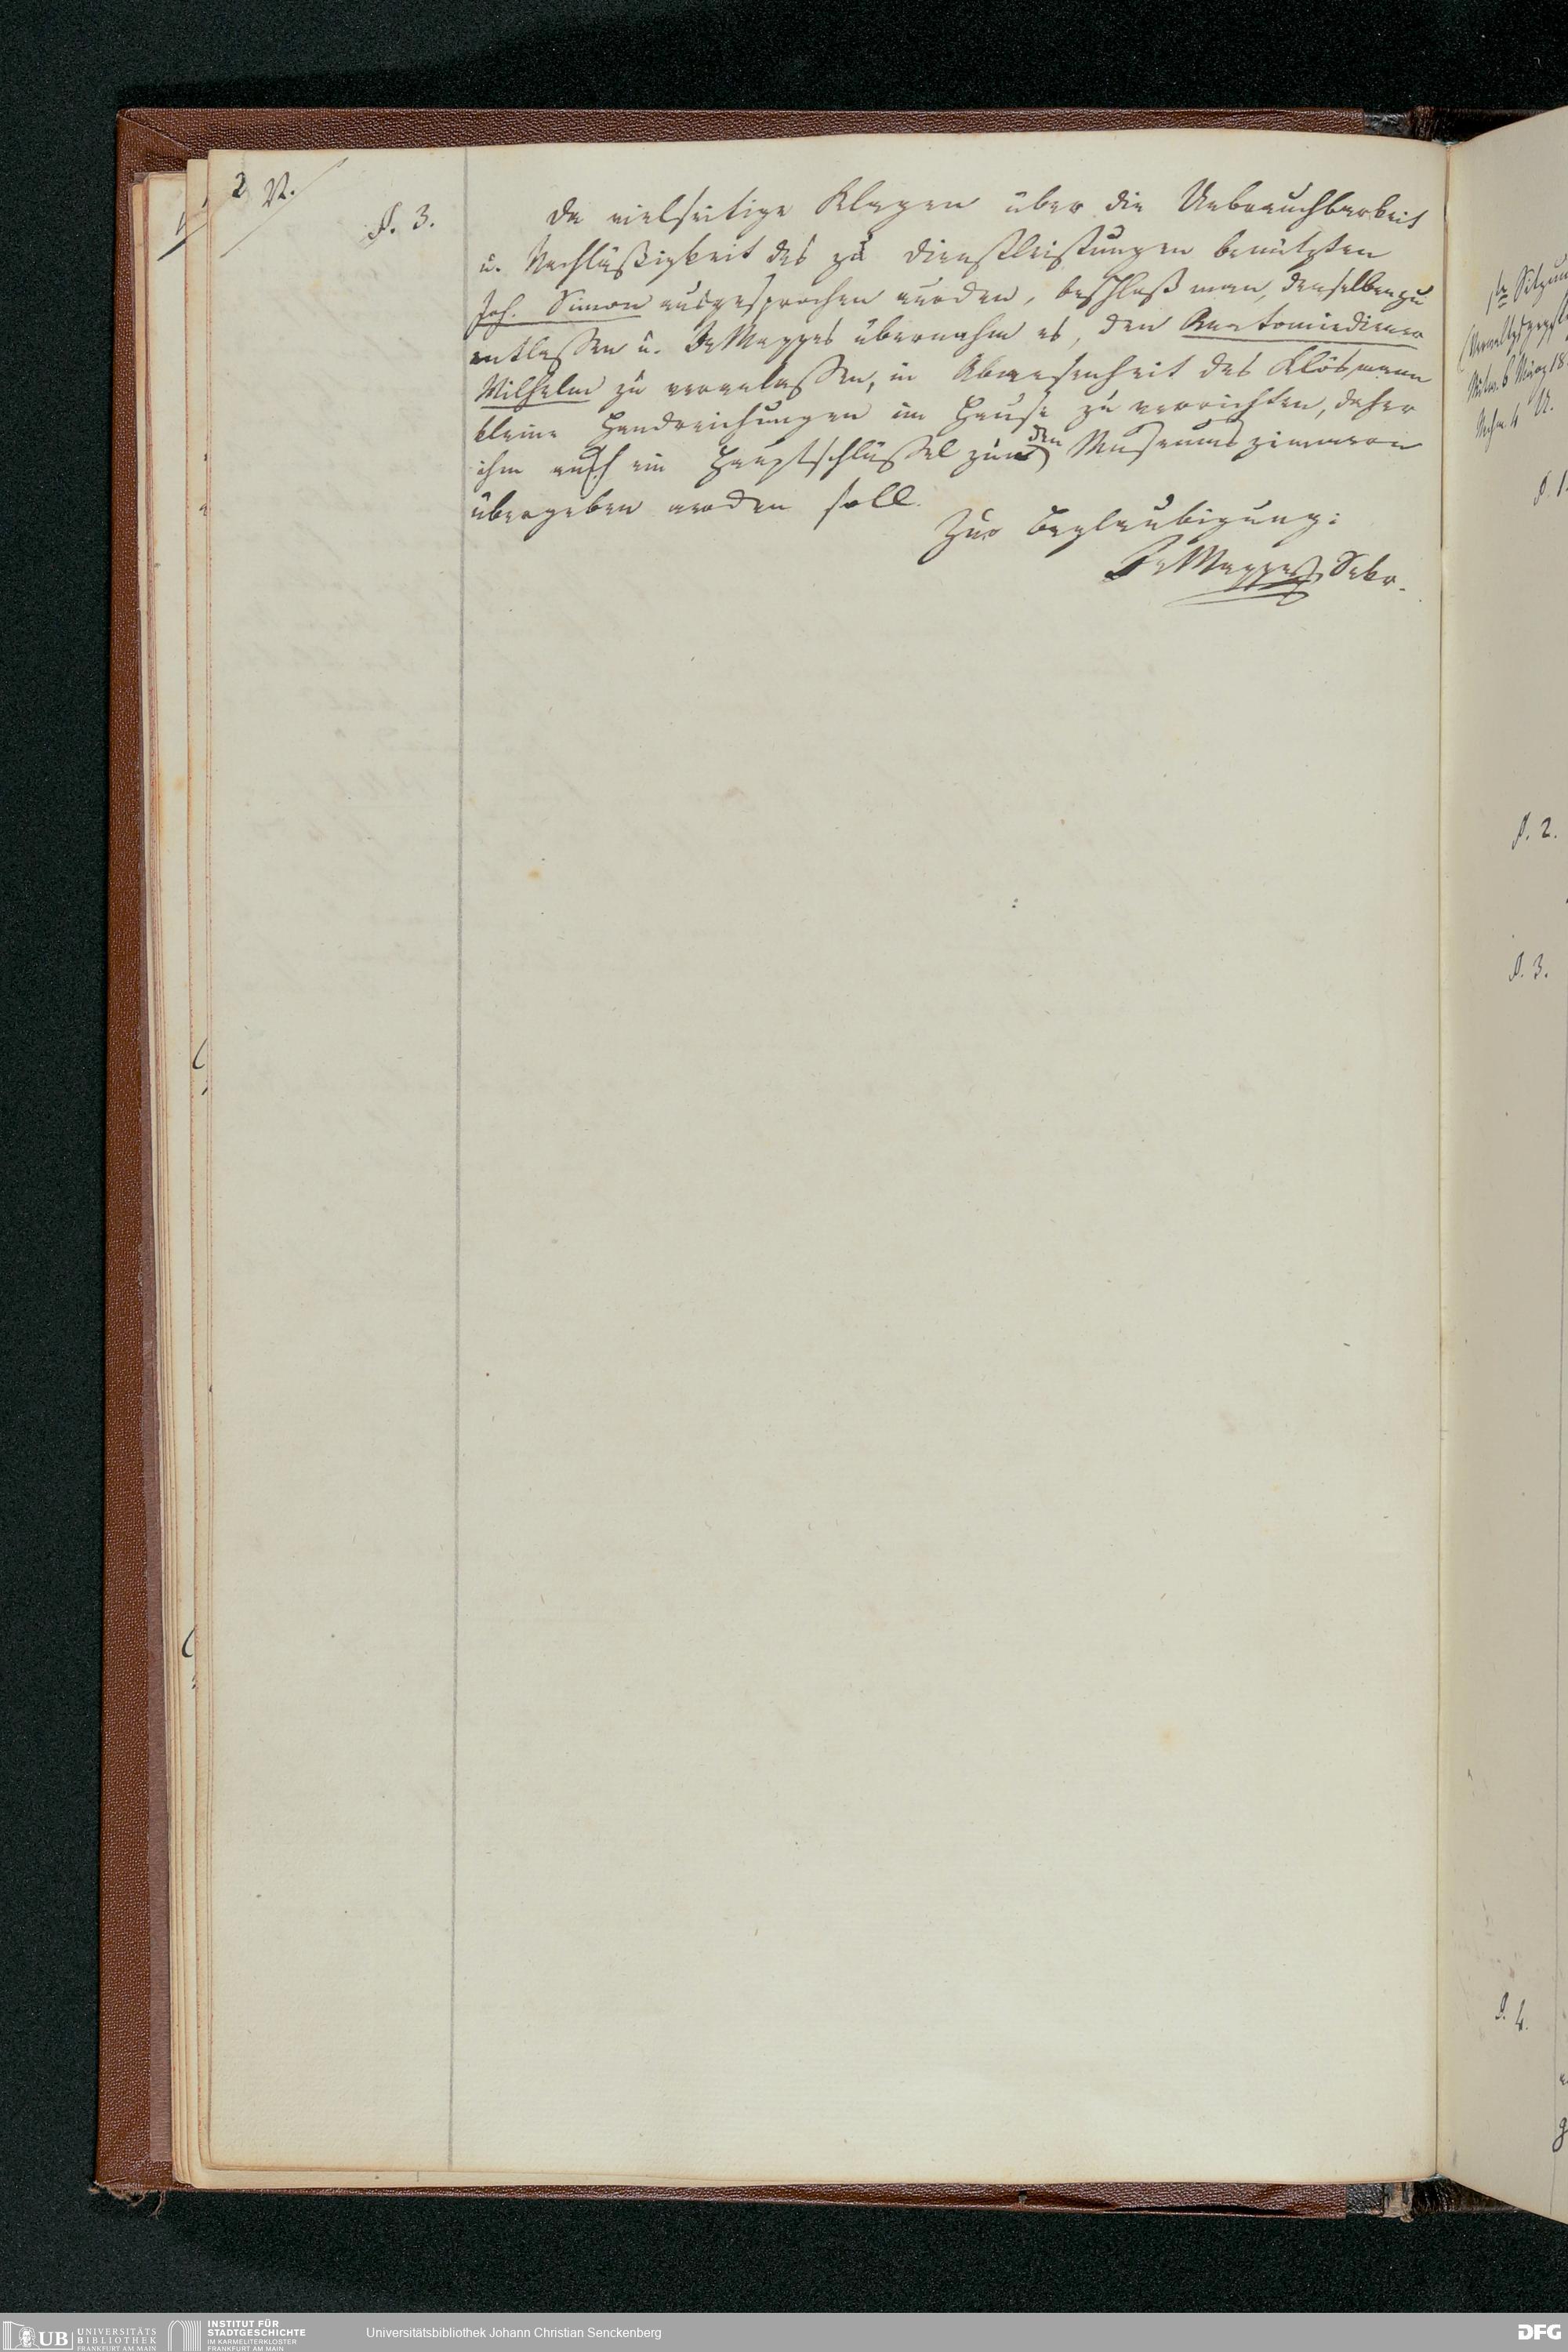 2 V.
§. 3.
Da vielseitige Klagen über die Unbrauchbarkeit
u. Nachläßigkeit des zu Dienstleistungen benützten
Joh. Simon ausgesprochen wurden, beschloß man, denselben zu
entlassen u. Dr Mappes übernahm es, den Anatomiediener
Wilhelm zu veranlassen, in Abwesenheit des Klösmann
kleine Handreichungen im Hause zu verrichten, daher
ihm auch ein Hauptschlüssel zu den Museumszimmern
übergeben werden soll.
Zur Beglaubigung:
Dr Mappes, Sekr.
Sitzung
6 März 18
4 U.
§. 1.
§. 2.
§. 3.
§. 4.
UB UNIVERSITÄTS
BIBLIOTHEK
FRANKFURT AM MAIN
INSTITUT FÜR
STADTGESCHICHTE
IM KARMELITERKLOSTER
FRANKFURT AM MAIN
Universitätsbibliothek Johann Christian Senckenberg
DFG